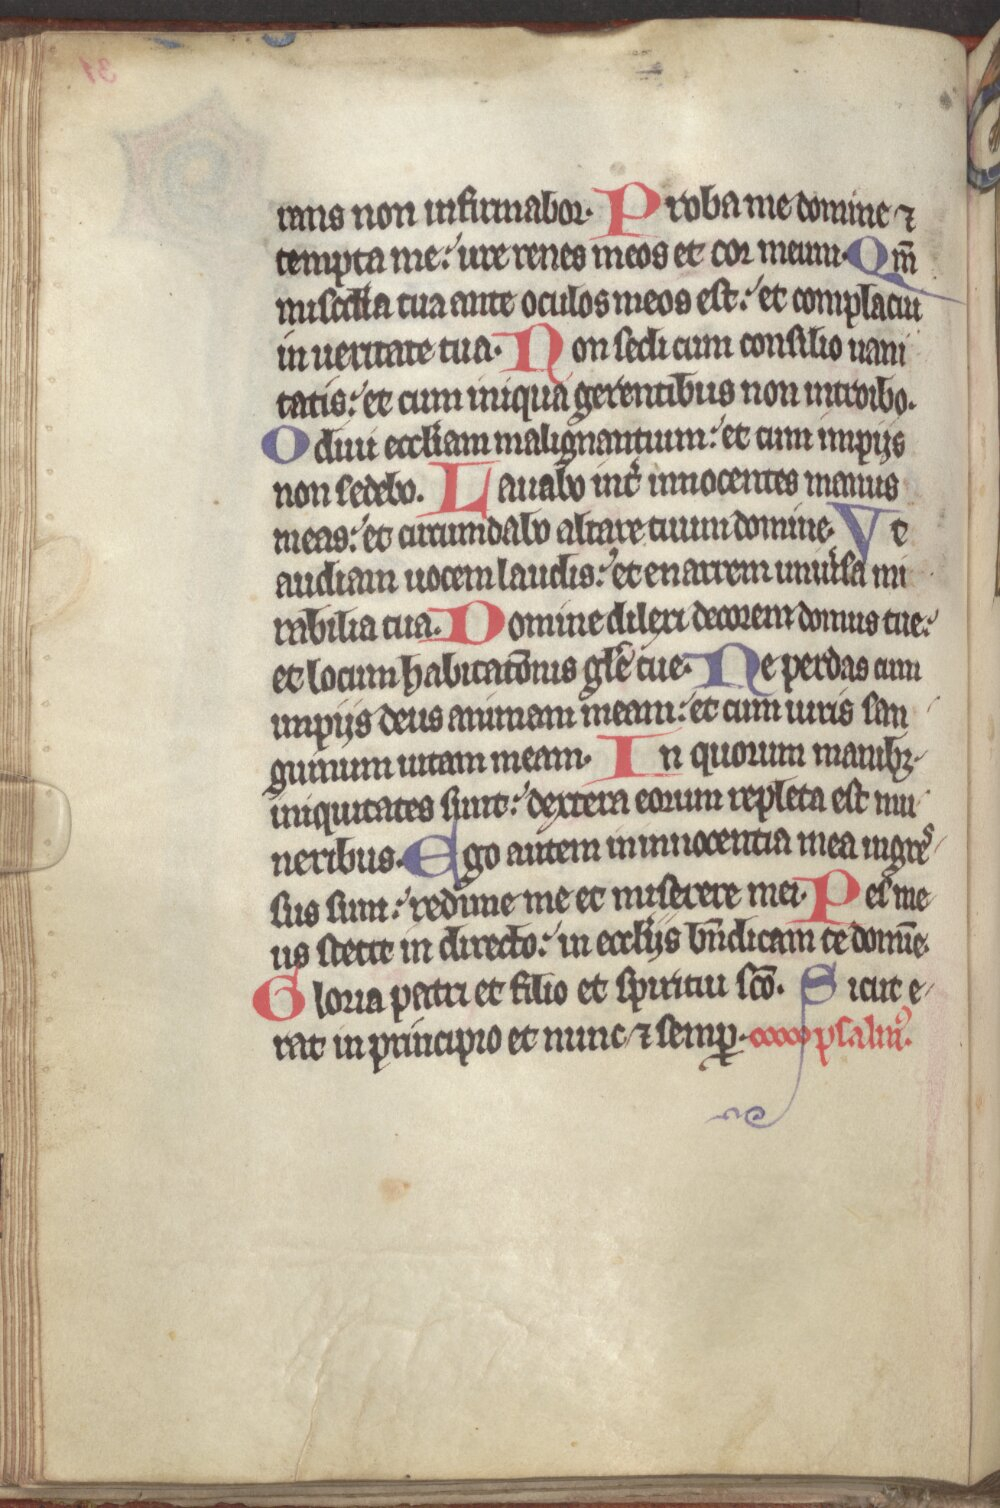 rans non infirmabor. Proba me domine ⁊
tempta me: ure renes meos et cor meum. Qm̄
misc̄dia tua ante oculos meos est: et complacui
in ueritate tua. Non sedi cum consilio uani
tatis: et cum iniqua gerentibus non introibo.
Odiui eccl̄iam malignantium: et cum impijs
non sedebo. Lauabo int̉ innocentes manus
meas: et circumdabo altare tuum domine. Ve
audiam uocem laudis: et enarrem uniủsa mi
rabilia tua. Domine dilexi decorem domus tue:
et locum habitatōnis gl̄e tue. Ne perdas cum
impijs deus animam meam: et cum uiris san
guinum uitam meam. In quorum manibꝫ
iniquitates sunt: dextera eorum repleta est mu
neribus. Ego autem in innocentia mea ingre̾s
sus sum: redime me et miserere mei. Pes me
us stetit in directo: in eccl̄ijs bn̄dicam te domīe.
Gloria patri et filio et spiritui sc̄o. Sicut e
rat in principio et nunc ⁊ semꝑ. psalmꝰ.
31